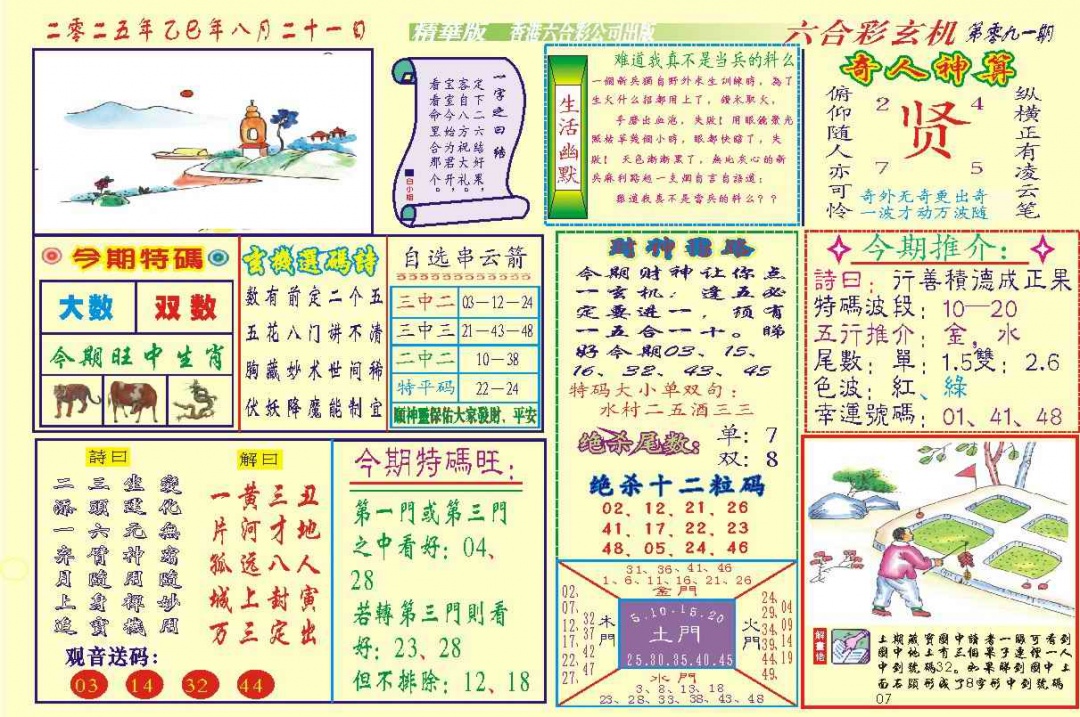 二零二五年乙巳年八月二十一日
精華版 香港六合彩公司出版
六合彩玄机 第零九一期
一字之曰結
定自下八二六結好果，
客宝今八方祝大礼。
看宝命始为君开
看里合那个
白小姐
生活幽默
难道我真不是当兵的料么
一個新兵獨自野外求生訓練時，為了
生火什么招都用上了，鑽木取火，
手磨出血泡，失敗！用眼鏡聚光
照枯草幾個小時，眼都快瞎了，失
敗！天色漸漸黑了，無比灰心的新
兵麻利點起一支烟自言自語道：
難道我真不是當兵的料么？？
奇人神算
俯仰随人亦可怜
2 4
贤
7 5
纵横正有凌云笔
奇外无奇更出奇
一波才动万波随
今期特碼
大数 双数
今期旺中生肖
玄機選碼詩
数有前定二个五
五花八门讲不清
胸藏妙术世间稀
伏妖降魔能制宜
自选串云箭
三中二 03—12—24
三中三 21—43—48
二中二 10—38
特平码 22—24
願神靈保佑大家發財、平安
財神
今期财神让你点
一玄机：逢五必
定要进一，须有
一五合一十。睇
好今期03、15、
16、32、43、45
特码大小单双句：
水村二五酒三三
绝杀尾数：单：7
双：8
绝杀十二粒码
02、12、21、26
41、17、22、23
48、05、24、46
今期推介：
詩曰：行善積德成正果
特碼波段：10—20
五行推介：金，水
尾數：單：1.5雙：2.6
色波：紅、綠
幸運號碼：01、41、48
詩曰
變化無窮隨妙用
坐運元神用禪機
三頭六臂隨身寶
二添一弃月上追
解曰
丑地人寅出
三才八封定
黄河远上三
一片孤城万
观音送码：
03 14 32 44
今期特碼旺：
第一門或第三門
之中看好：04、
28
若轉第三門則看
好：23、28
但不排除：12、18
31、36、41、46
1、6、11、16、21、26
金門
02、07、12、17、22、27、
32、37、42、47
木門
5.10.15.20
土門
25.30.35.40.45
火門
24、29、34、39、44、49
04、09、14、19
水門
3、8、13、18
23、28、33、38、43、48
解畫悟
上期藏寶圖中讀者一眼可看到
圖中地上有三個果子連裡一人
中到號碼32。如果睇到圖中上
面石頭形成了8字形中到號碼
07